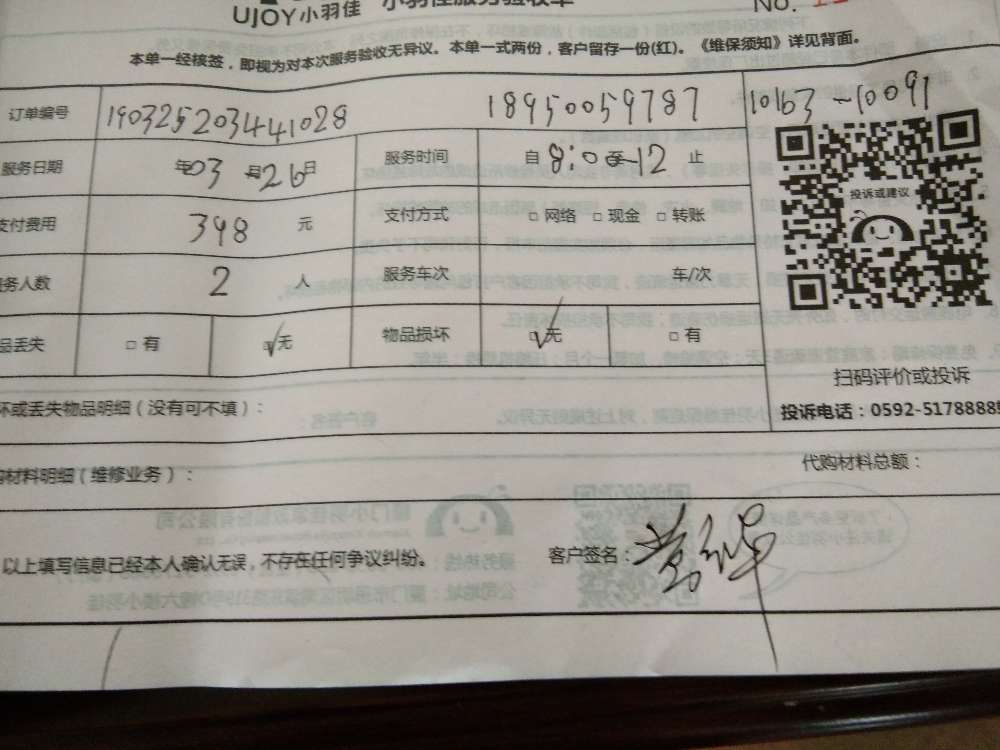 UJOY小羽佳 小羽佳服务验收单 NO.
本单一经核签，即视为对本次服务验收无异议。本单一式两份，客户留存一份(红)。《维保须知》详见背面。
订单编号 190325203441028 18950059787 10163-10091
服务日期 年03月26日 服务时间 自8:00至12止
支付费用 398 元 支付方式 □ 网络 □ 现金 □ 转账
服务人数 2 人 服务车次 车/次
品丢失 □ 有 √无 物品损坏 √无 □ 有
投诉或建议
扫码评价或投诉
投诉电话：0592-5178888
坏或丢失物品明细（没有可不填）：
购材料明细（维修业务）： 代购材料总额：
以上填写信息已经本人确认无误，不存在任何争议纠纷。 客户签名：